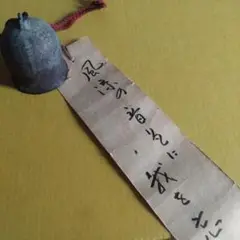 風涼の音色に我を忘